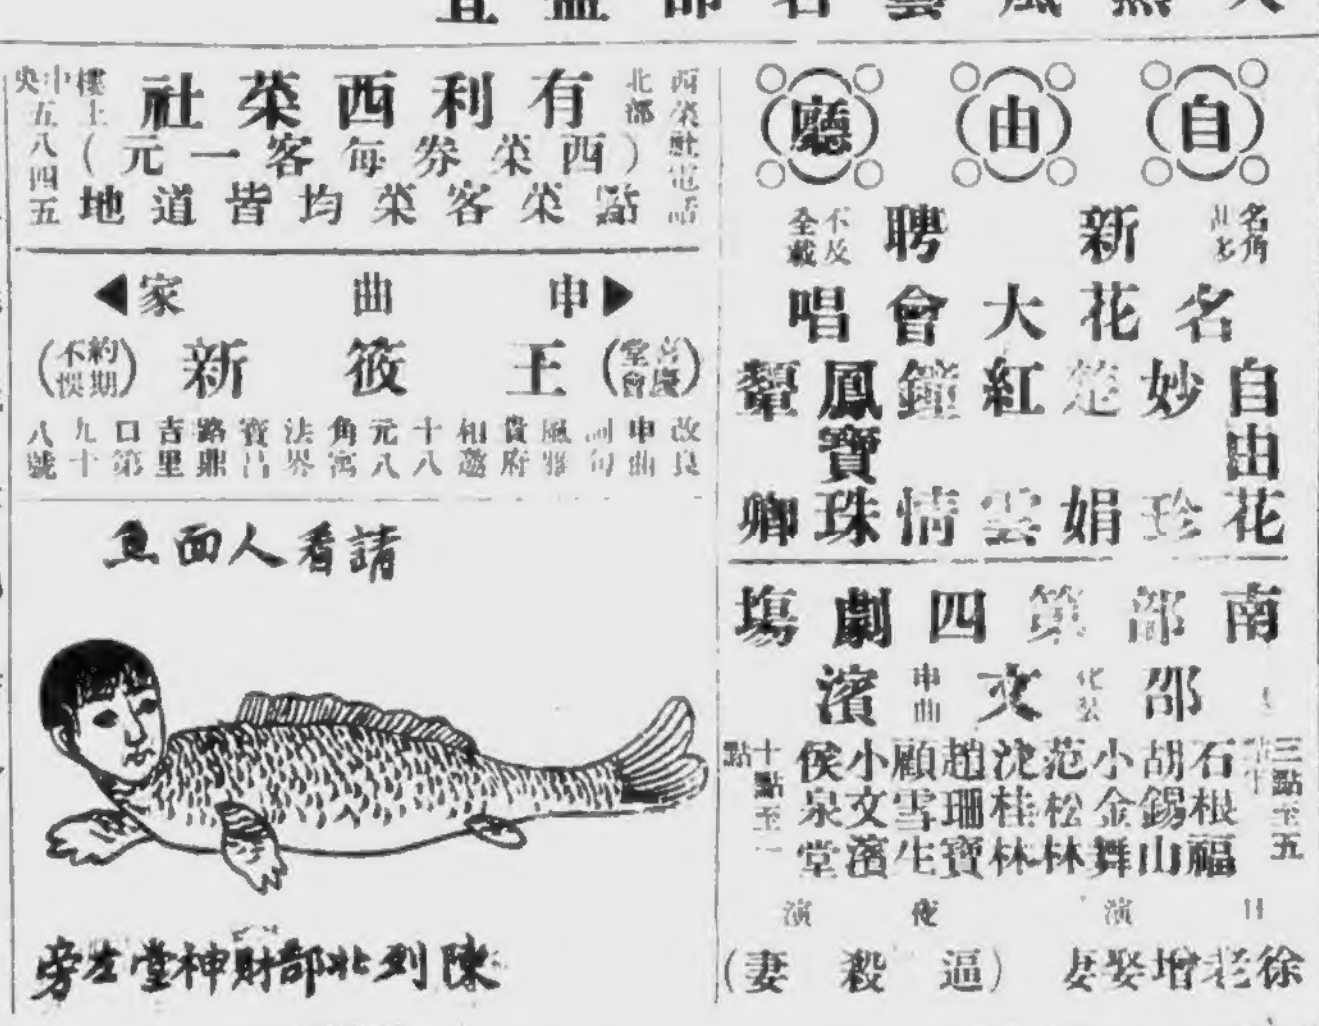 自由廳
名角甚多
新聘
不及全載
名花大會唱
自由花
妙珍
楚娟
紅雲
鐘情
鳳寶珠
顰卿
南部第四劇塲
邵文濱
化裝申曲
三點至五
石根福
胡錫山
小金舞
范松林
沈桂林
趙珊寶
顧雪生
小文濱
侯泉堂
十點至一點
日演
夜演
徐老增娶妻
(逼殺妻)
西菜社電話
北部
有利西菜社
樓上
中央五八四五
(西菜券每客一元)
點菜客菜均皆道地
申曲家
(喜慶堂會)
王筱新
(約期不悞)
改良申曲詞句風雅貴府相邀十八元八角寓法界寶昌路鼎吉里口第九十八號
請看人面魚
陳列北部財神堂左旁